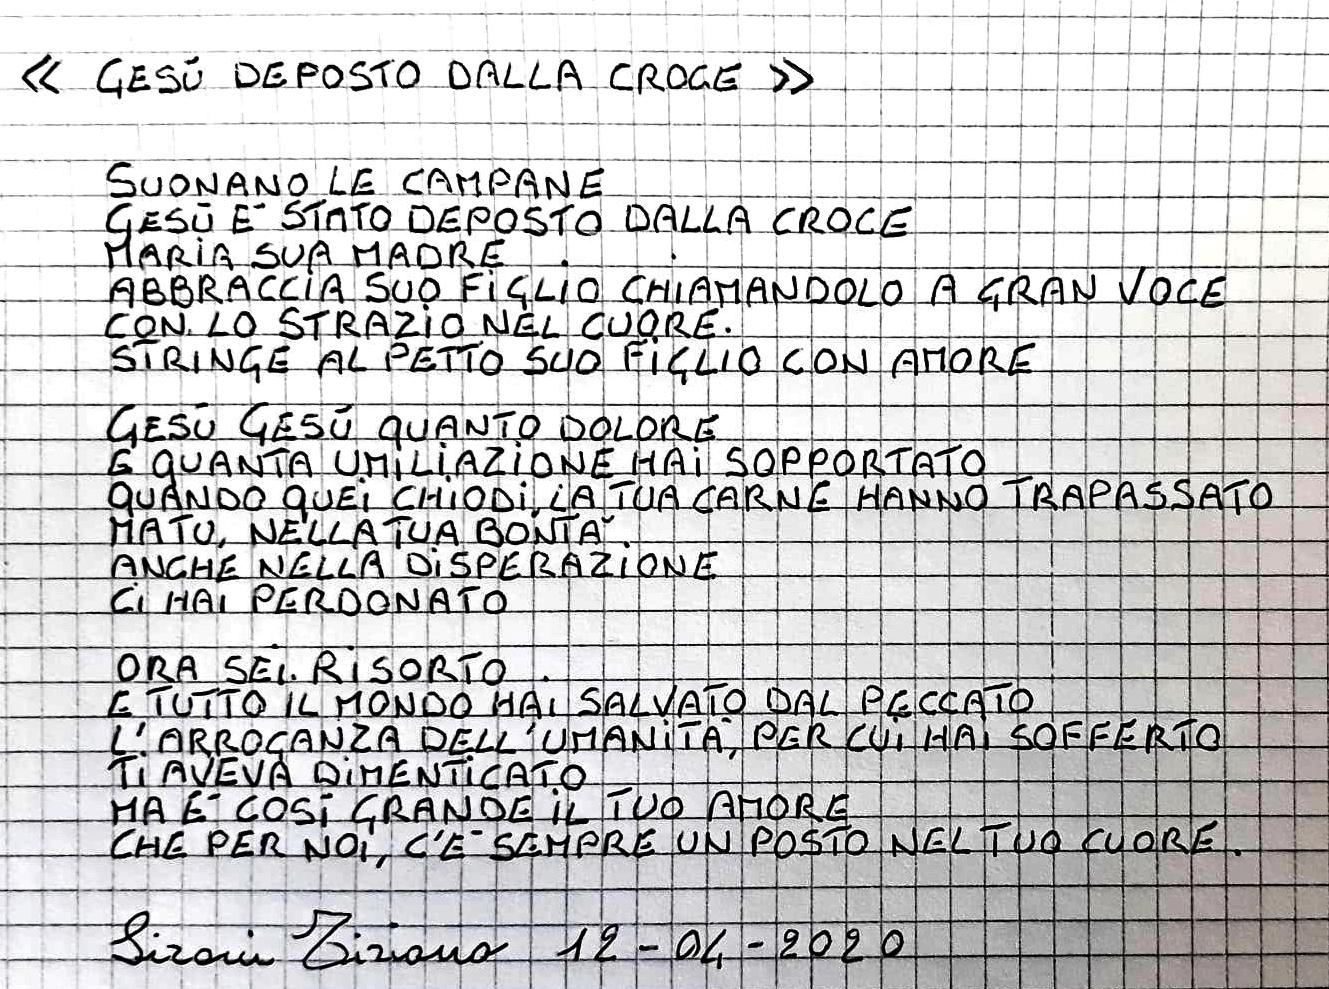 « GESÙ DEPOSTO DALLA CROCE »
SUONANO LE CAMPANE
GESÙ E' STATO DEPOSTO DALLA CROCE
MARIA SUA MADRE
ABBRACCIA SUO FIGLIO CHIAMANDOLO A GRAN VOCE
CON LO STRAZIO NEL CUORE.
STRINGE AL PETTO SUO FIGLIO CON AMORE
GESÙ GESÙ QUANTO DOLORE
E QUANTA UMILIAZIONE HAI SOPPORTATO
QUANDO QUEI CHIODI, LA TUA CARNE HANNO TRAPASSATO
MA TU, NELLA TUA BONTA'
ANCHE NELLA DISPERAZIONE
CI HAI PERDONATO
ORA SEI RISORTO
E TUTTO IL MONDO HAI SALVATO DAL PECCATO
L'ARROGANZA DELL'UMANITÀ, PER CUI HAI SOFFERTO
TI AVEVA DIMENTICATO
MA E' COSÌ GRANDE IL TUO AMORE
CHE PER NOI, C'E' SEMPRE UN POSTO NEL TUO CUORE.
Tiziano 12-04-2020